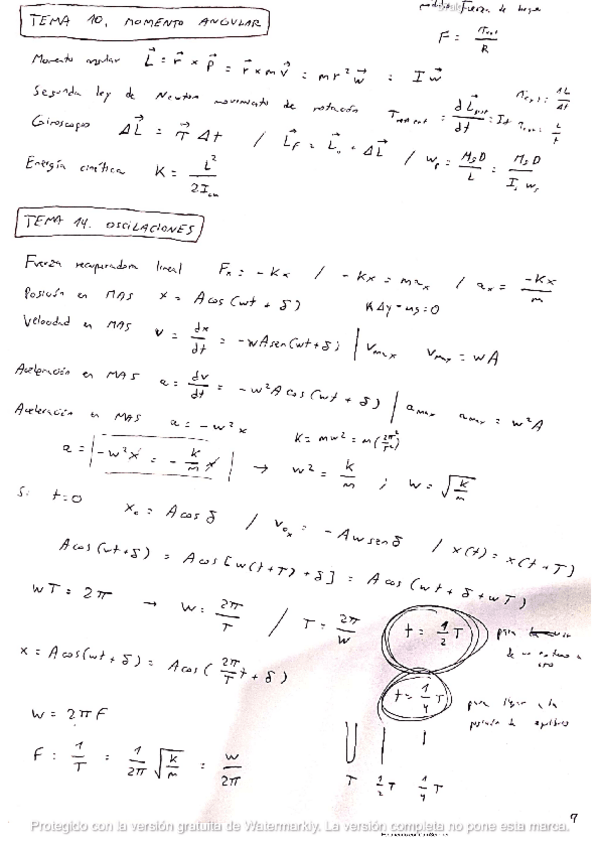 TEMA 10. MOMENTO ANGULAR
Fuerza de
F = τ_ext / R
Momento angular L⃗ = r⃗ × p⃗ = r⃗ × m v⃗ = m r² w⃗ = I w⃗
Segunda ley de Newton movimiento de rotación
Giroscopo ΔL⃗ = τ⃗ Δt / L⃗_F = L⃗_0 + ΔL⃗ / w_p = MgD / L = MgD / I_s w_s
Energía cinética K = L² / 2I_cm
TEMA 14. OSCILACIONES
Fuerza recuperadora lineal Fx = -Kx / -Kx = max / ax = -Kx / m
Posición en MAS x = A cos (wt + δ) KΔy - mg = 0
Velocidad en MAS v = dx/dt = -wA sen(wt + δ) | Vmax Vmax = wA
Aceleración en MAS a = dv/dt = -w²A cos (wt + δ) | amax amax = w²A
Aceleración en MAS a = -w²x K = mw² = m(2π²/T²)
a = |-w²x = -k/m x| → w² = k/m ; w = √k/m
Si t=0 x_0 = A cos δ / V_0x = -Aw sen δ / x(t) = x(t+T)
A cos (wt+δ) = A cos [w(t+T) + δ] = A cos (wt + δ + wT)
wT = 2π → w = 2π/T / T = 2π/w
t = 1/2 T para
de un extremo a
otro
x = A cos(wt + δ) = A cos (2π/T t + δ)
t = 1/4 T para llegar a la
posición de equilibrio
w = 2πF
F = 1/T = 1/2π √k/m = w/2π
T 1/2 T 1/4 T
9
Protegido con la versión gratuita de Watermarkly. La versión completa no pone esta marca.